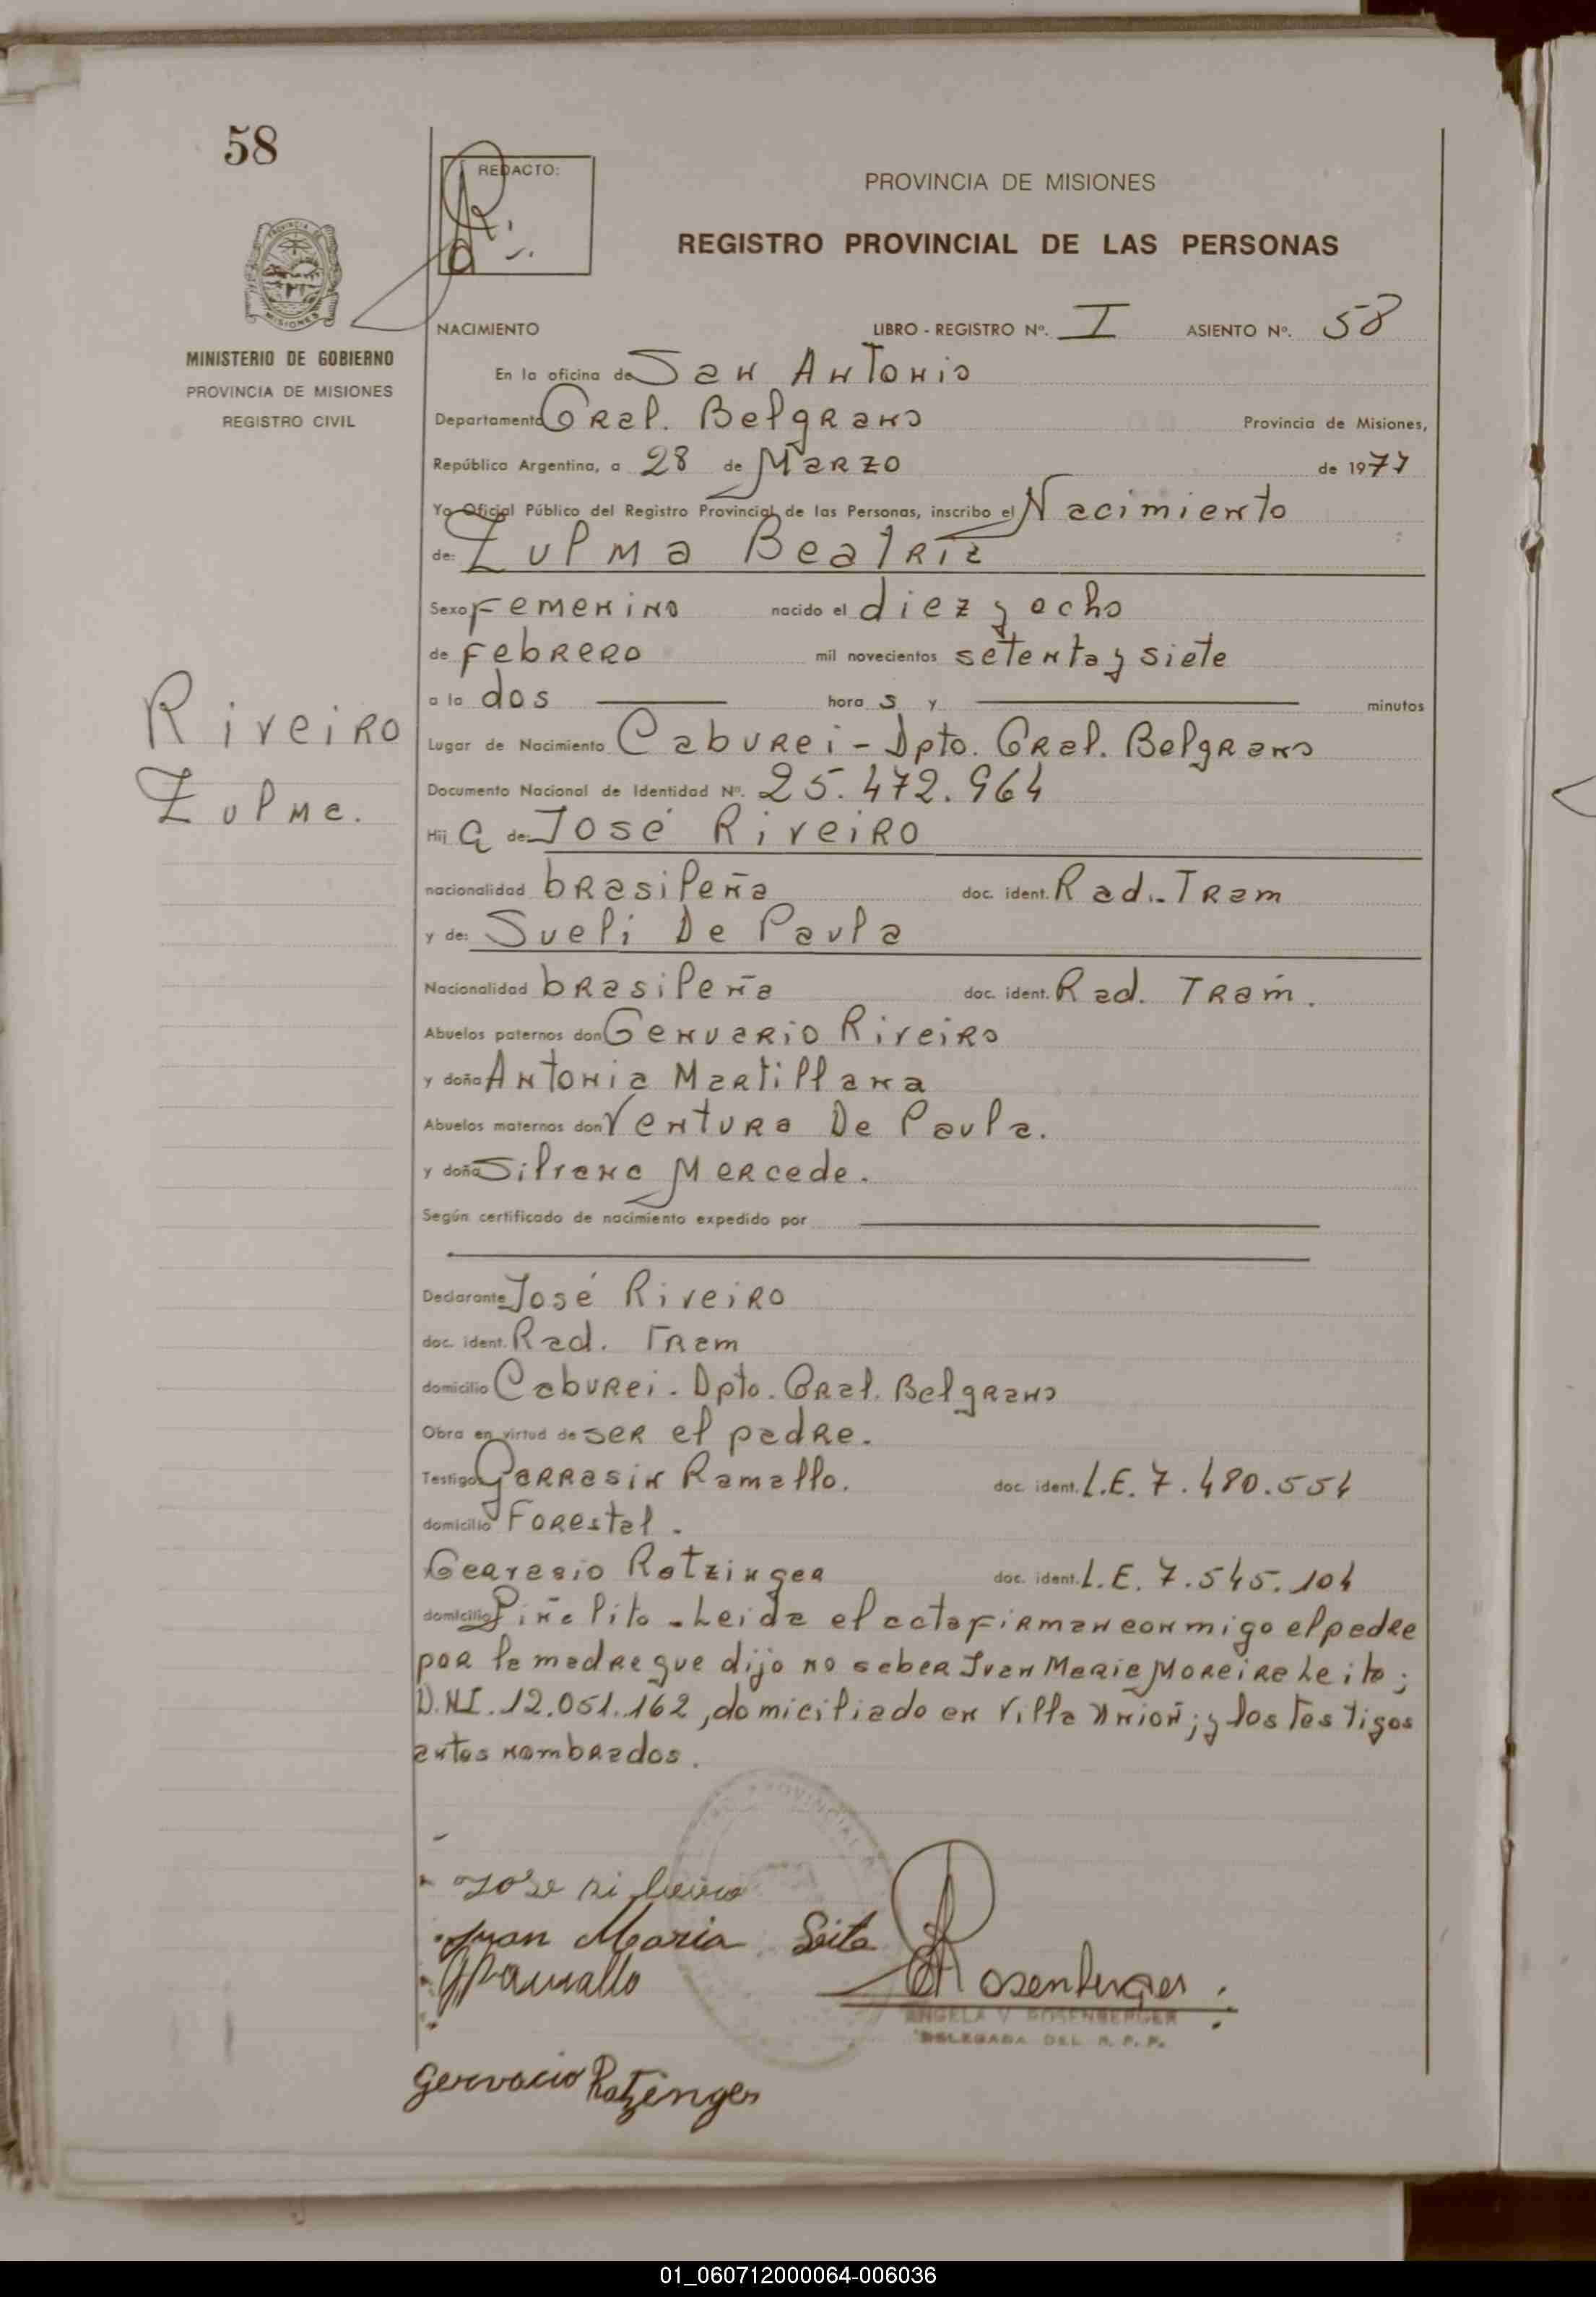 58
REDACTO:
PROVINCIA DE MISIONES
REGISTRO PROVINCIAL DE LAS PERSONAS
PROVINCIA DE
MISIONES
MINISTERIO DE GOBIERNO
PROVINCIA DE MISIONES
REGISTRO CIVIL
NACIMIENTO LIBRO - REGISTRO Nº. I ASIENTO Nº. 58
En la oficina de San Antonio
Departamento Gral. Belgrano Provincia de Misiones,
República Argentina, a 28 de Marzo de 1977
Yo Oficial Público del Registro Provincial de las Personas, inscribo el Nacimiento
de: Zulma Beatriz
Sexo Femenino nacido el diez y ocho
de Febrero mil novecientos setenta y siete
a la dos hora s y minutos
Riveiro
Zulma.
Lugar de Nacimiento Caburei - Dpto. Gral. Belgrano
Documento Nacional de Identidad Nº. 25.472.964
Hij a de: José Riveiro
nacionalidad brasileña doc. ident. Rad. Tram
y de: Sueli De Paula
Nacionalidad brasileña doc. ident. Rad. Tram.
Abuelos paternos don Genuario Riveiro
y doña Antonia Martillana
Abuelos maternos don Ventura De Paula.
y doña Silvana Mercede.
Según certificado de nacimiento expedido por
Declarante José Riveiro
doc. ident. Rad. Tram
domicilio Caburei. Dpto. Gral. Belgrano
Obra en virtud de ser el padre.
Testigos Garrasin Ramallo. doc. ident. L.E. 7.480.554
domicilio Forestal.
Gearasio Ratzinger doc. ident. L.E. 7.545.104
domicilio Piñalito - Leida el acta firman conmigo el padre
por la madre que dijo no saber Juan Maria Moreira Leito;
D.NI. 12.051.162, domiciliado en Villa Unión; y los testigos
antes nombrados.
PROVINCIAL
Jose ri beiro
Juan Maria Leite
GRamallo
Rosenberger
ANGELA V ROSENBERGER
DELEGADA DEL R. P. P.
Gervacio Ratzinger
01_060712000064-006036